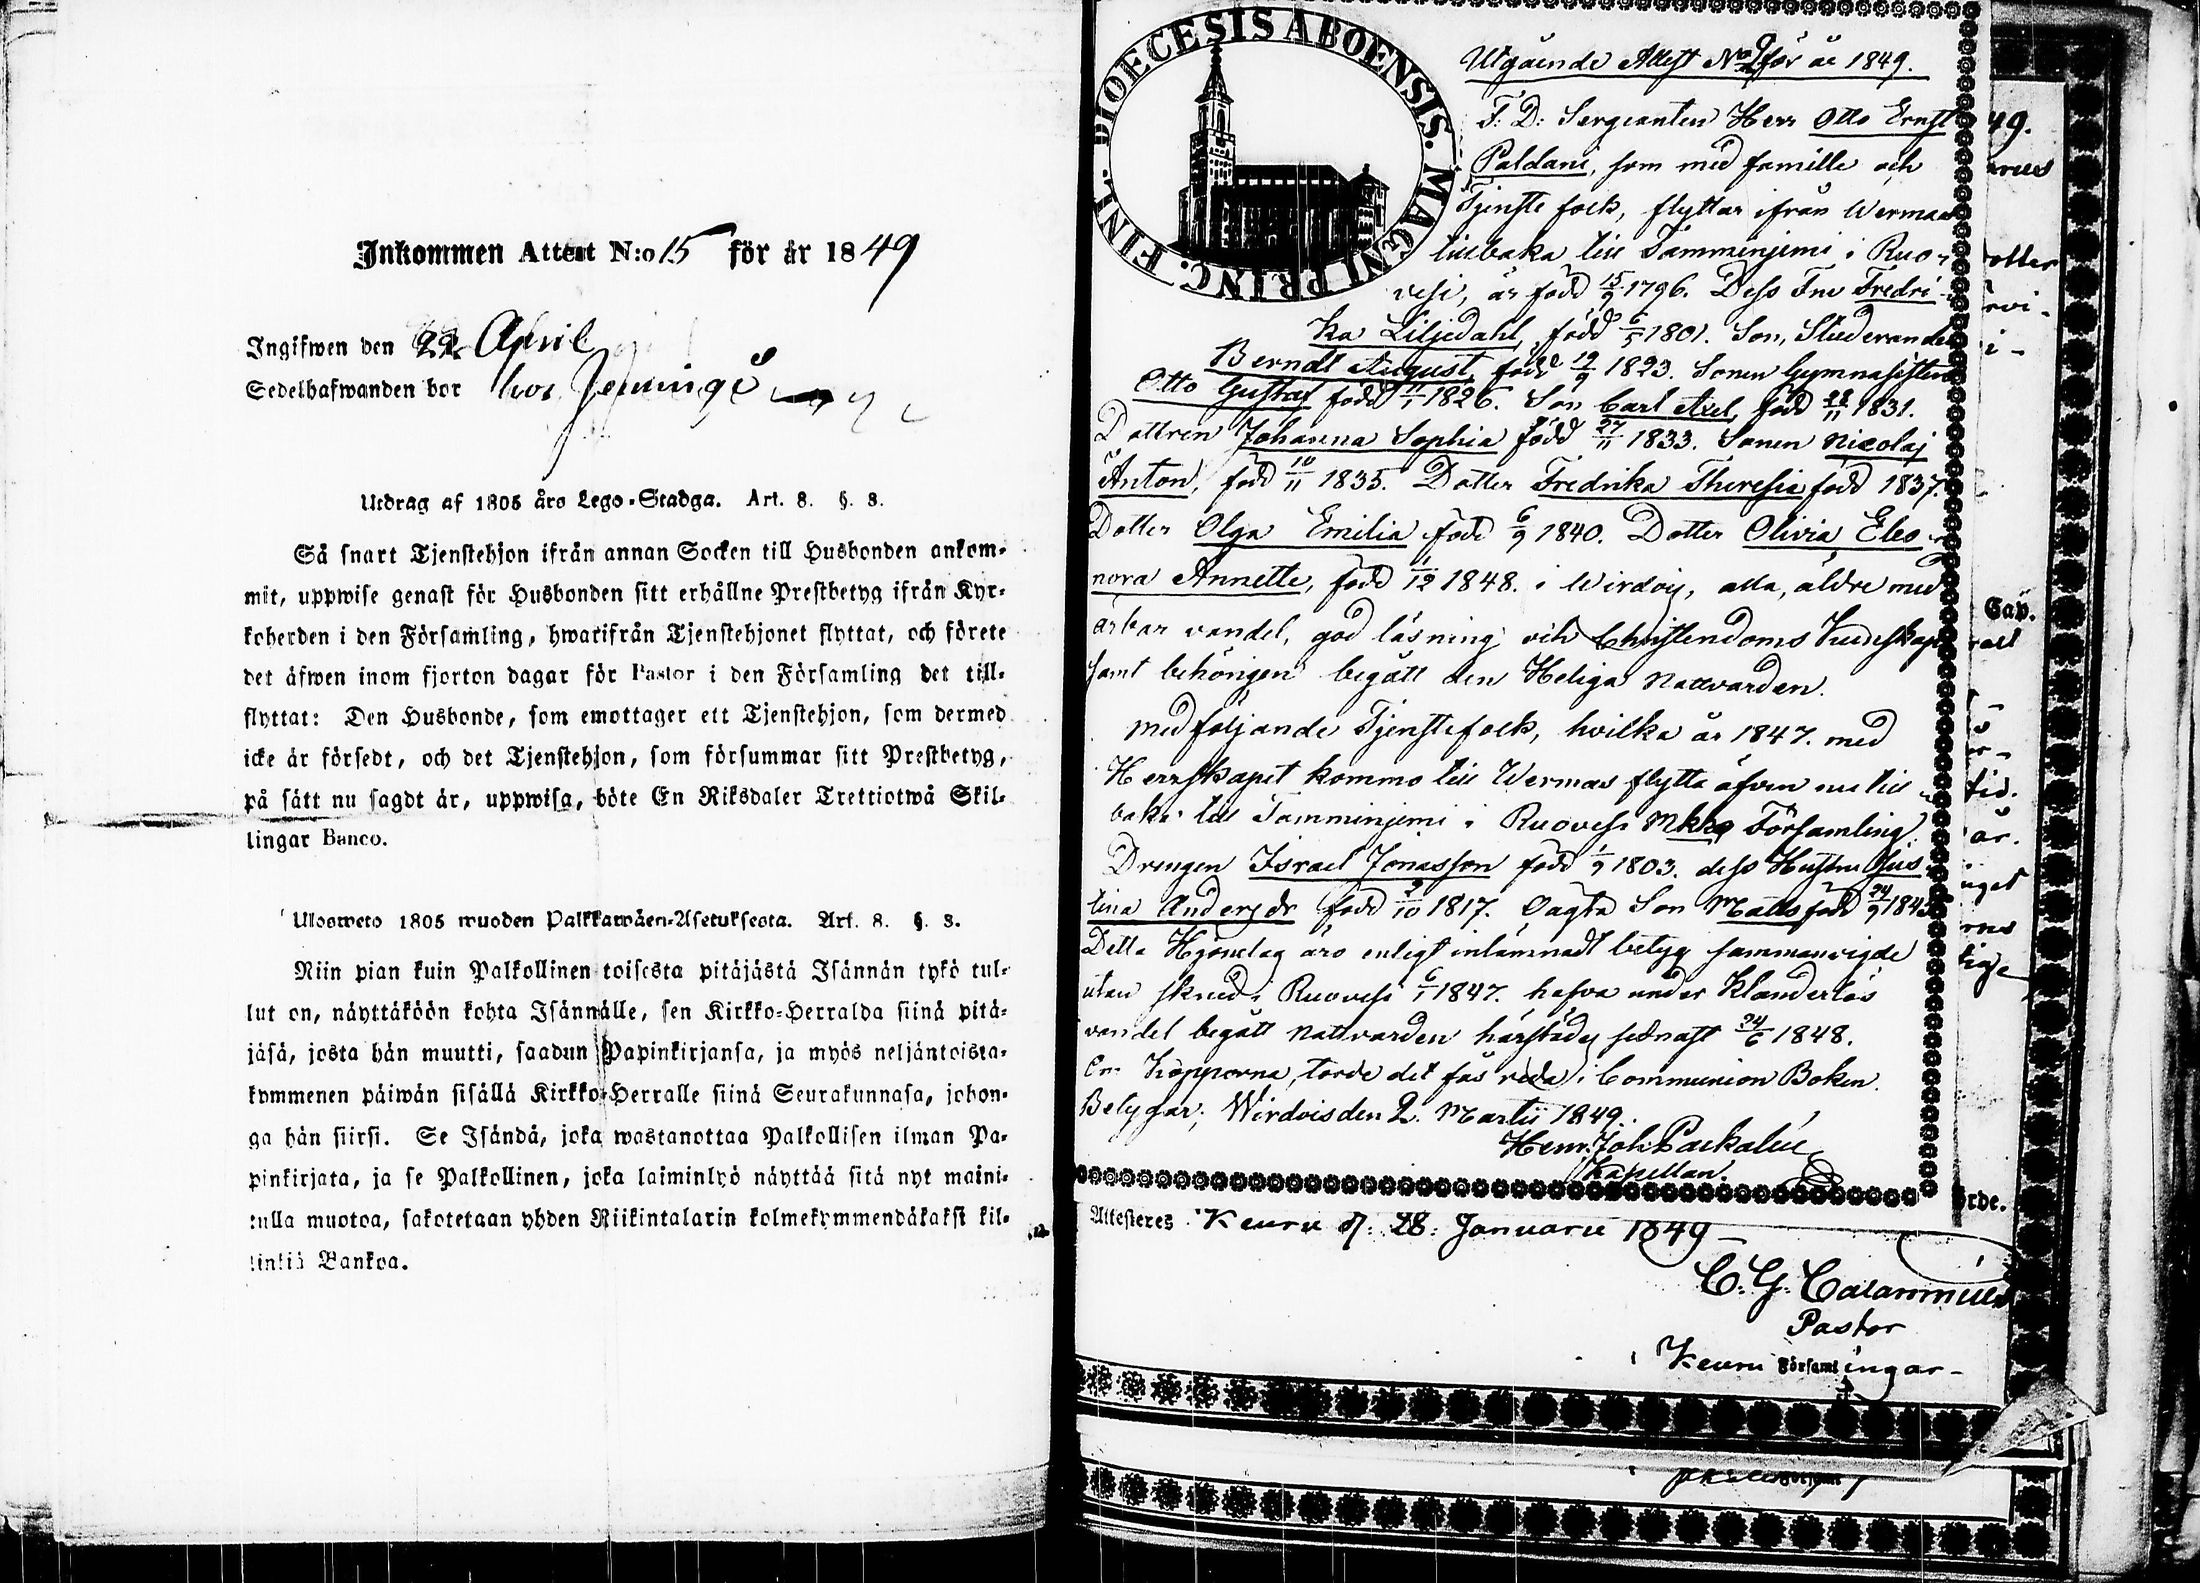 Inkommen Attest N:o 15 för år 1849
Ingifwen den 22 April
Sedelhafwanden bor hos
Utdrag af 1805 års Lego-Stadga. Art. 8. §. 8.
Så snart Tjenstehjon ifrån annan Socken till Husbonden ankom-
mit, uppwise genast för Husbonden sitt erhållne Prestbetyg ifrån Kyr-
koherden i den Församling, hwarifrån Tjenstehjonet flyttat, och förete
det äfwen inom fjorton dagar för Pastor i den Församling det till-
flyttat: Den Husbonde, som emottager ett Tjenstehjon, som dermed
icke är försedt, och det Tjenstehjon, som försummar sitt Prestbetyg,
på sätt nu sagdt är, uppwisa, böte En Riksdaler Trettiotwå Skil-
lingar Banco.
Ulosweto 1805 wuoden Palkkawäen-Asetuksesta. Art. 8. §. 8.
Niin pian kuin Palkollinen toisesta pitäjästä Isännän tykö tul-
lut on, näyttäköön kohta Isännälle, sen Kirkko-Herralda siinä pitä-
jäsä, josta hän muutti, saadun Papinkirjansa, ja myös neljäntoista-
kymmenen päiwän sisällä Kirkko-Herralle siinä Seurakunnasa, johon-
ga hän siirsi. Se Isändä, joka wastanottaa Palkollisen ilman Pa-
pinkirjata, ja se Palkollinen, joka laiminlyö näyttää sitä nyt maini-
tulla muotoa, sakotetaan yhden Riikintalarin kolmekymmendäkaksi kil-
linkiä Bankoa.
DIOECESIS ABOENSIS. MAGNI PRINC. FINL.
Utgående Attest No 9 för år 1849.
F: D: Sergeanten Herr Otto Ernst
Paldani, som med famille och
Tjenste folk, flyttar ifrån Wermas
tillbaka till Tamminjemi i Ruo-
vesi, är född 15/9 1796. Dess Fru Fredri-
ka Liljedahl, född 6/5 1801. Son, Studerande
Berndt August, född 19/9 1823. Sonen Gymnasisten
Otto Gustaf född 11/1 1826. Son Carl Axel, född 28/11 1831.
Dottren Johanna Sophia född 27/11 1833. Sonen Nicolaj
Anton, född 10/11 1835. Dotter Fredrika Theresia född 1837.
Dotter Olga Emilia född 6/9 1840. Dotter Olivia Eleo-
nora Annette, född 1/12 1848. i Wirdois, alla, äldre med
ärbar vandel, god läsning och Christendoms Kunskap
samt behörigen begått den Heliga Nattvarden.
Medföljande Tjenstefolk, hvilka år 1847. med
Herrskapet kommo till Wermas flytta äfven nu till-
baka till Tamminjemi i Ruovesi Mkka Församling
Drengen Israel Jonasson född 1/9 1803. dess Hustru Jus-
tina Andersdr född 9/10 1817. Oägta Son Matts född 24/9 1843
Detta Hjonelag äro enligt inlämnadt betyg sammanvigde
utan skrud i Ruovesi 6/1 1847. hafva under Klanderlös
vandel begått Nattvarden härstädes sednast 24/6 1848.
Om Kopporna, torde det fås reda i Communion Boken.
Betygar, Wirdois den 2. Martii 1849.
Henr. Joh.
Kapellan.
Attesteres Keuru d. 28. Januarii 1849
C. G. Calamnius
Pastor
i Keuru Församlingar